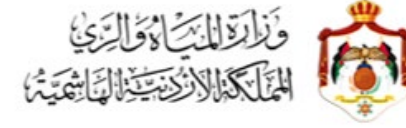 وَزَارَة المِيَاه وَالرَّي
المَملَكَة الأُردُنِيَّة الهَاشِمِيَّة